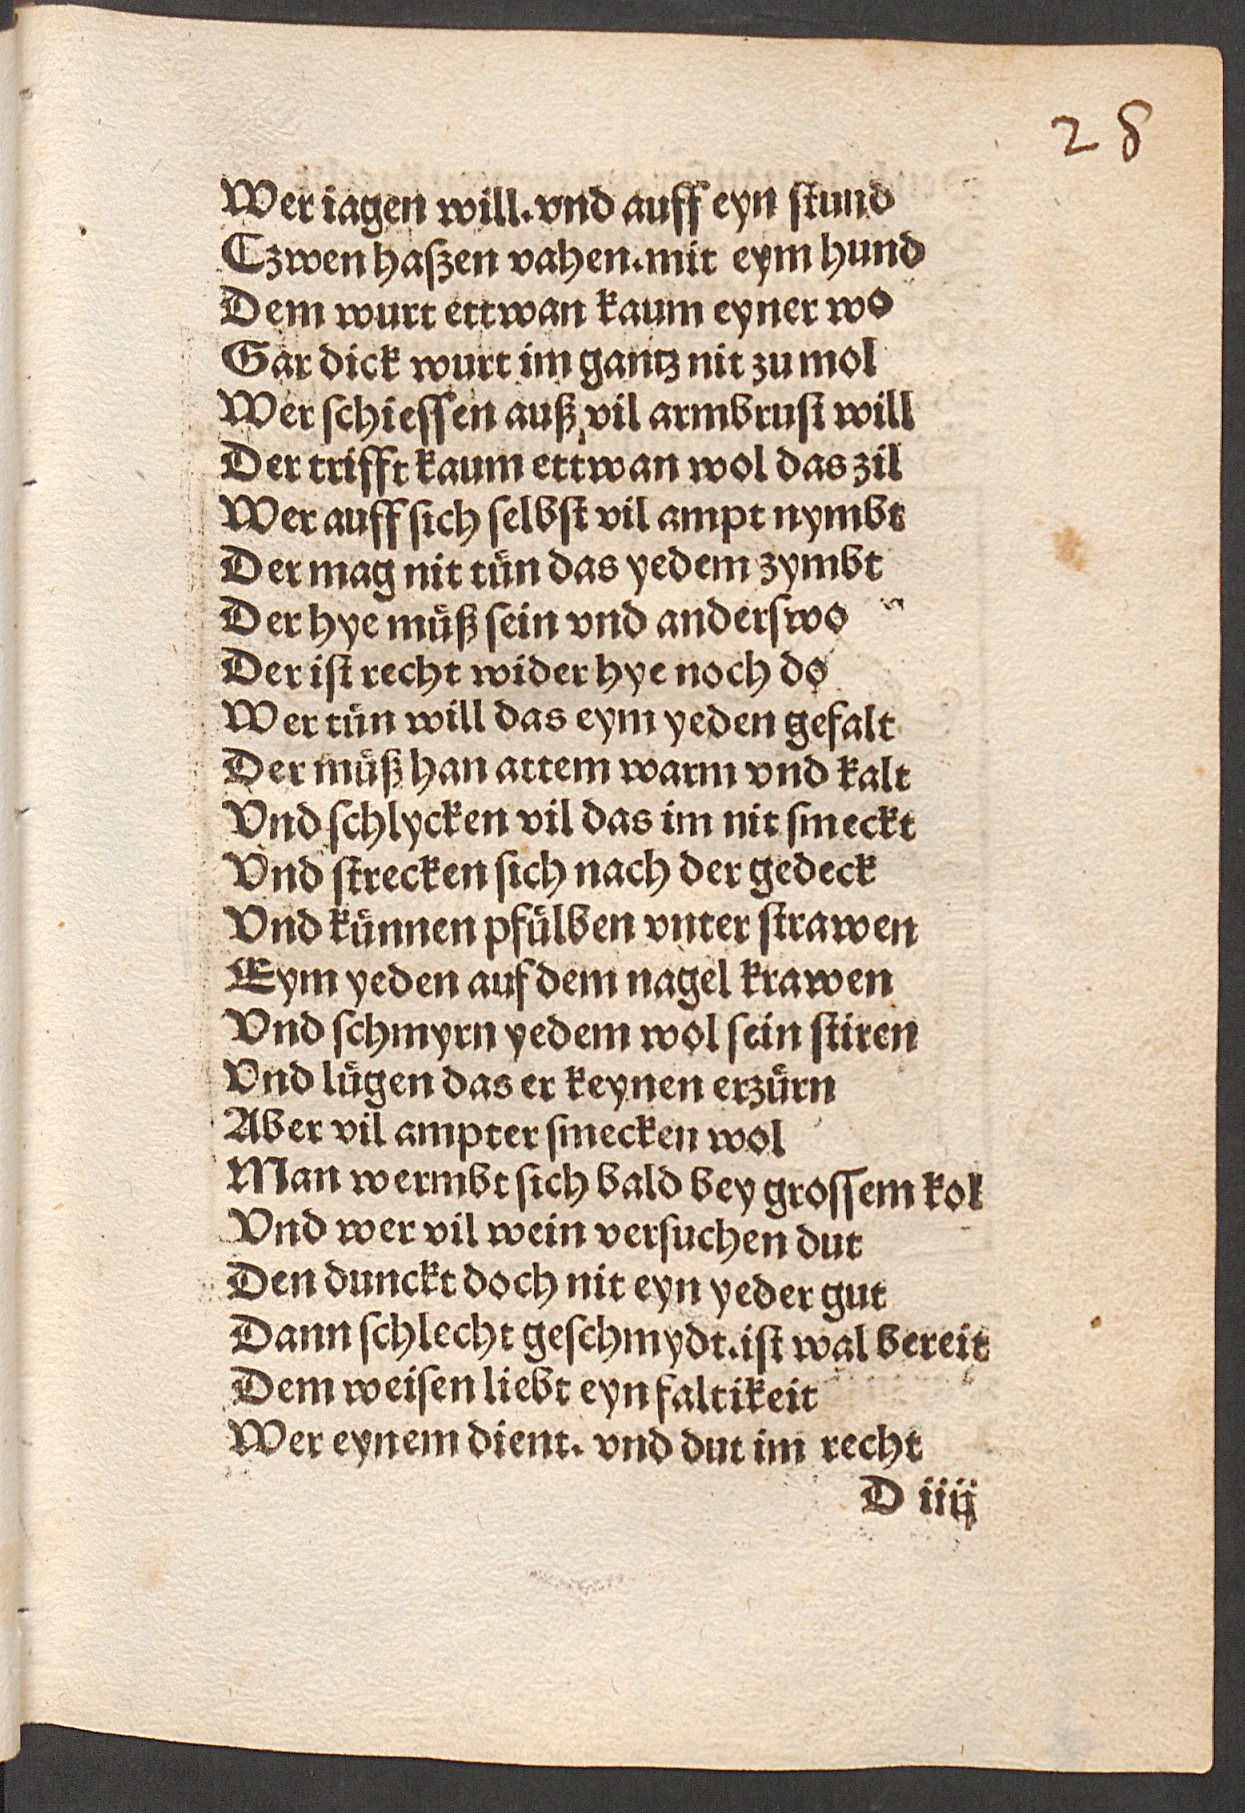 28
Wer iagen will. vnd auff eyn stund
Czwen haszen vahen. mit eym hund
Dem wurt ettwan kaum eyner wo
Gar dick wurt im gantz nit zu mol
Wer schiessen auß vil armbrust will
Der trifft kaum ettwan wol das zil
Wer auff sich selbst vil ampt nymbt
Der mag nit tuͤn das yedem zymbt
Der hye muͤß sein vnd anderswo
Der ist recht wider hye noch do
Wer tuͤn will das eym yeden gefalt
Der muͤß han attem warm vnd kalt
Vnd schlycken vil das im nit smeckt
Vnd strecken sich nach der gedeck
Vnd kuͤnnen pfuͤlben vnter strawen
Eym yeden auf dem nagel krawen
Vnd schmyrn yedem wol sein stiren
Vnd luͤgen das er keynen erzuͤrn
Aber vil ampter smecken wol
Man wermbt sich bald bey grossem kol
Vnd wer vil wein versuchen dut
Den dunckt doch nit eyn yeder gut
Dann schlecht geschmydt. ist wal bereit
Dem weisen liebt eynfaltikeit
Wer eynem dient. vnd dut im recht
D iiij